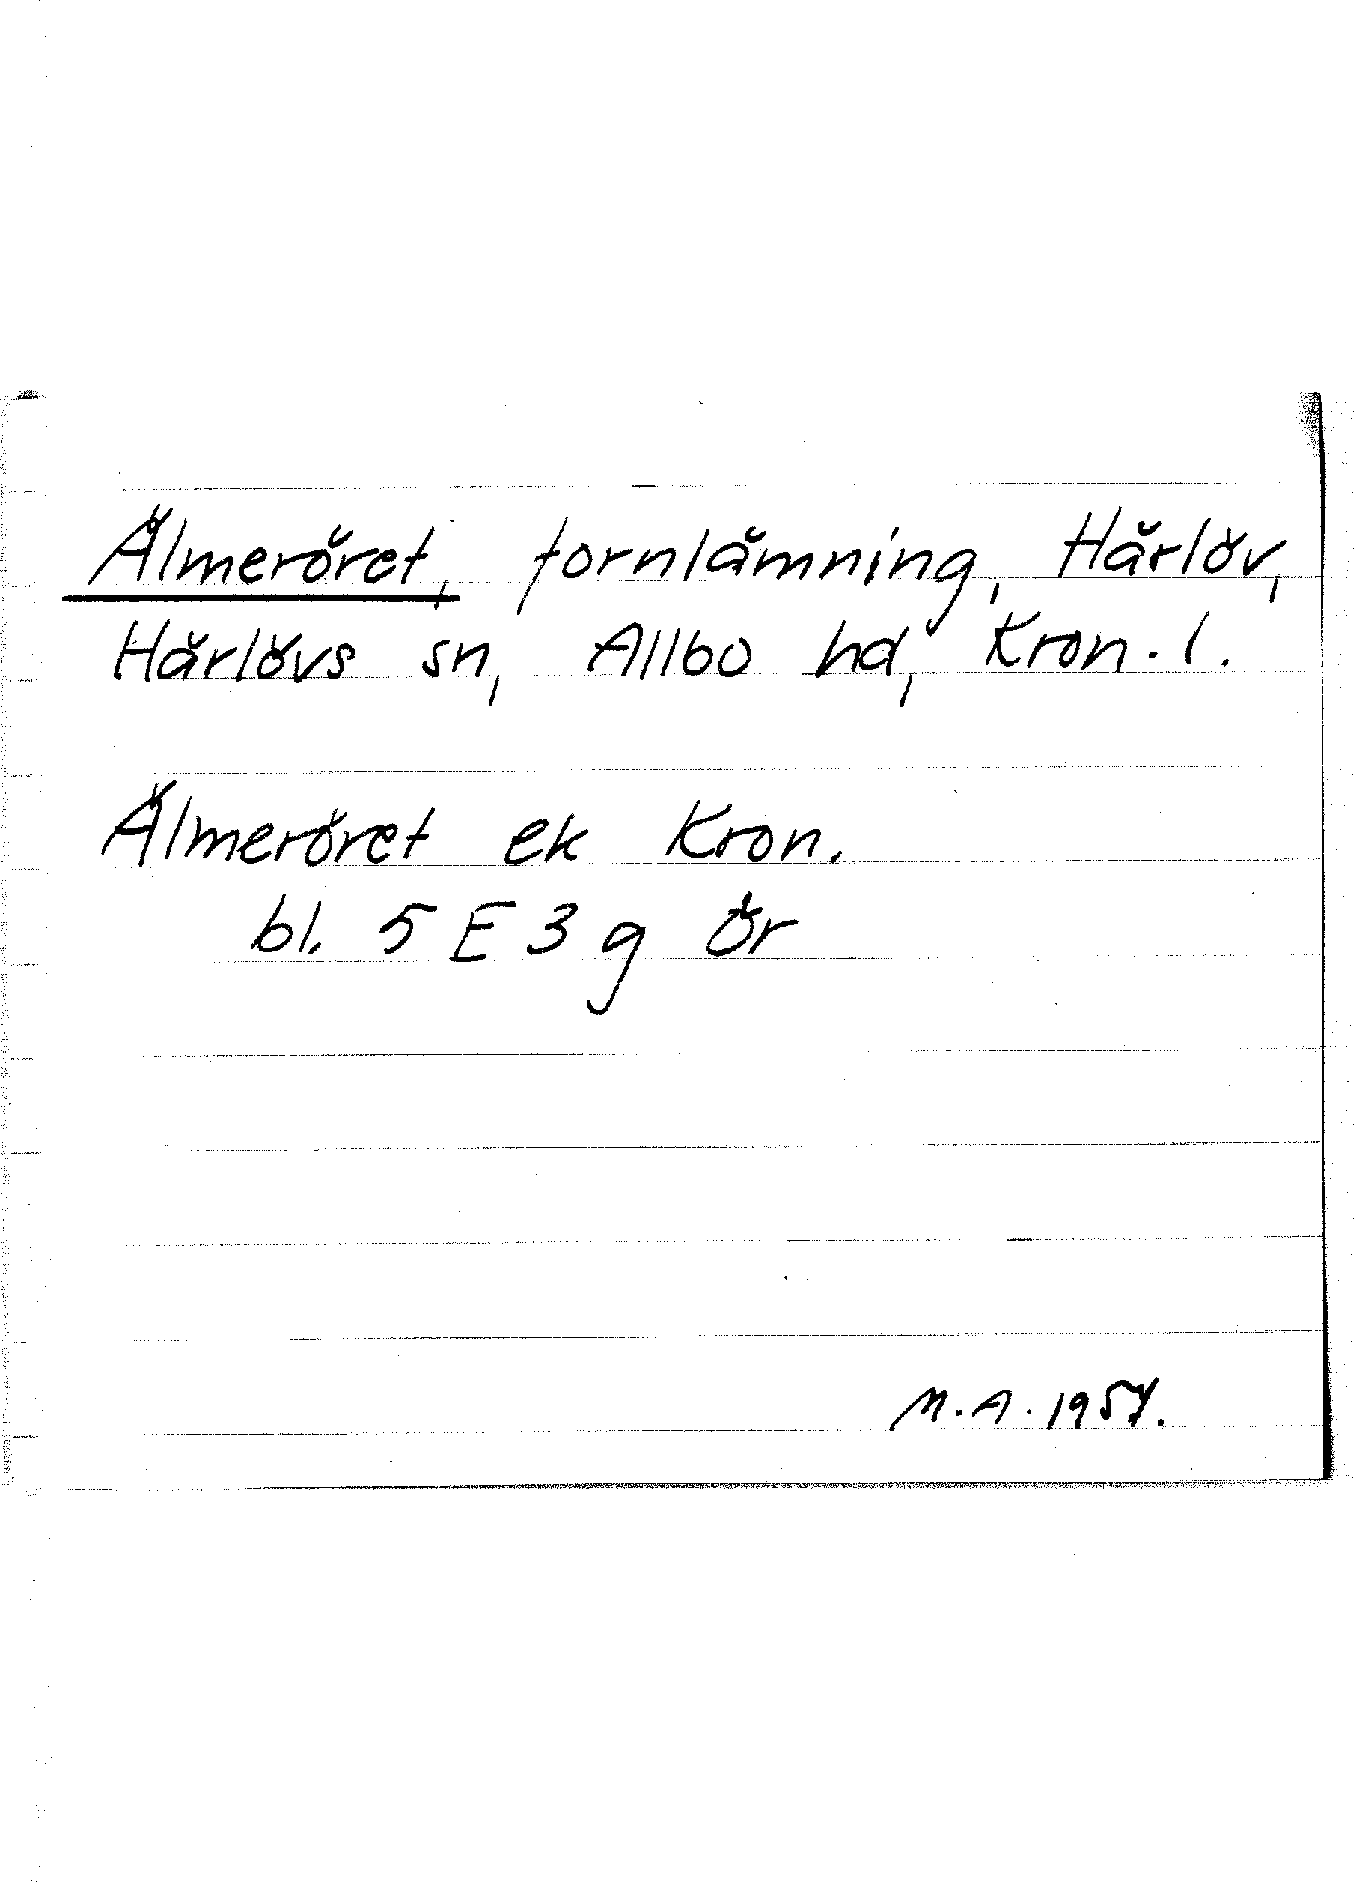 Älmeröret, fornlämning, Härlöv,
Härlövs sn, Allbo hd, Kron. l.
Älmeröret ek Kron.
bl. 5 E 3 g Ör
M.A. 1957.